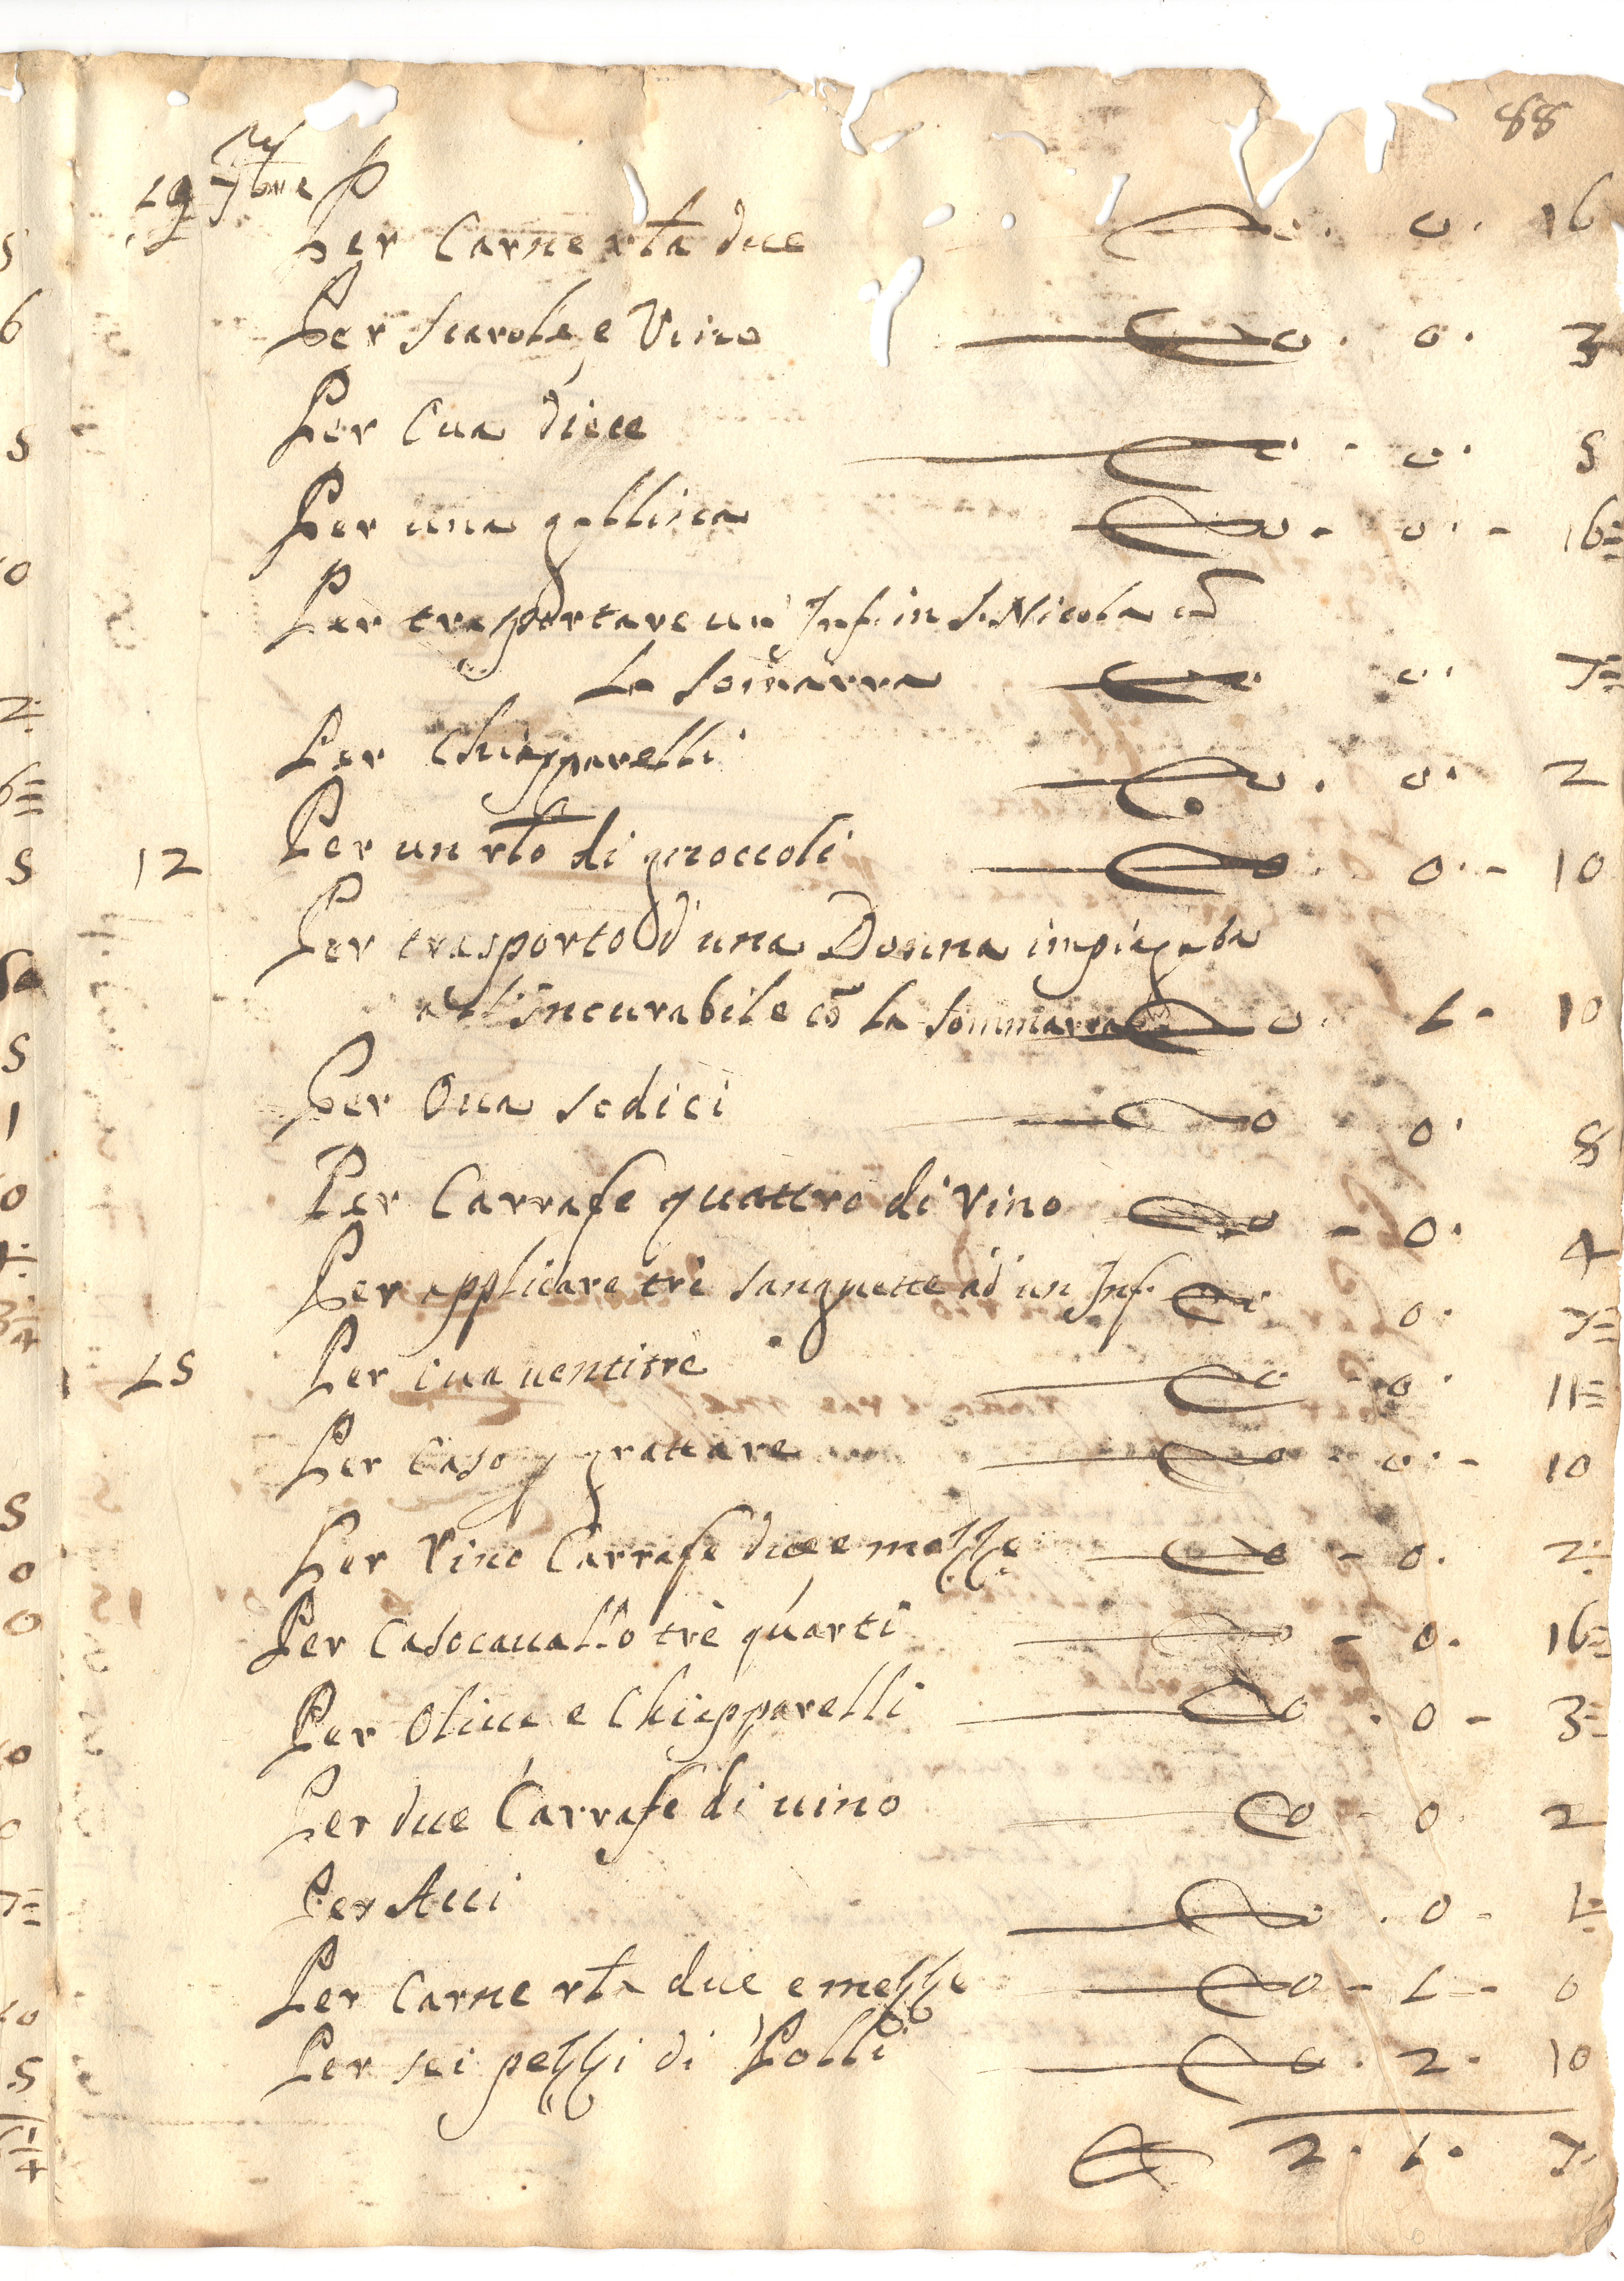 88
19 7bre p
Per Carne rla due 0. 0. 16
Per Scarole, e Vino 0. 0. 3
Per Ova diece 0. - 0. 5
Per una gallina 0. - 0. - 16=
Per trasportare un Inf. in S. Nicola cō
La Somarra 0. 0. 7=
Per Chiapparelli 0. 0. 2
12 Per un rlo di groccoli 0. 0. - 10
Per trasporto d'una Donna impiagata
all'Incurabile cō la sommarra 0. 1. 10
Per Oua sedici 0 - 0. 8
Per Carrafe quattro di Vino 0 - 0. 4
Per applicare trè sanguette ad un Inf. 0 0. 7=
15 Per oua uentitrè 0. - 0. 11=
Per Caso p grattare 0 - 0. - 10
Per Vino Carrafe due e mezze 0 - 0. 2.
Per Casocauallo trè quarti 0 - 0. 16=
Per Oliue e Chiapparelli 0 . 0 - 3=
Per due Carrafe di uino 0 - 0. 2
Per Acci 0 . 0 - 1=
Per Carne rla due e mezze 0 - 1 - 0
Per sei pezzi di Polli 0. 2. 10
2. 1. 7.